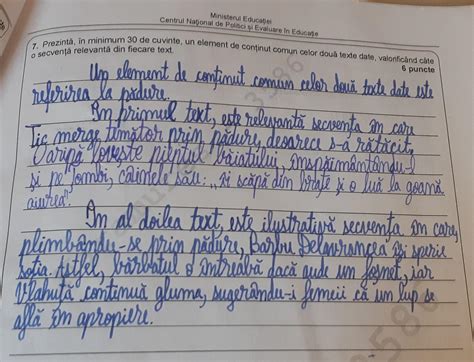 Ministerul Educației
Centrul Național de Politici și Evaluare în Educație
7. Prezintă, în minimum 30 de cuvinte, un element de conținut comun celor două texte date, valorificând câte
o secvență relevantă din fiecare text.
6 puncte
Un element de conținut comun celor două texte date este
referirea la pădure.
În primul text, este relevantă secvența în care
Tic merge temător prin pădure, deoarece s-a rătăcit.
O aripă lovește pieptul băiatului, înspăimântându-l
și pe Tombi, câinele său: "îi scăpă din brațe și o luă la goană
aiurea!"
În al doilea text, este ilustrativă secvența în care,
plimbându-se prin pădure, Barbu Delavrancea își sperie
soția. Astfel, bărbatul o întreabă dacă aude un foșnet, iar
Vlahuță continuă gluma, sugerându-i femeii că un lup se
află în apropiere.